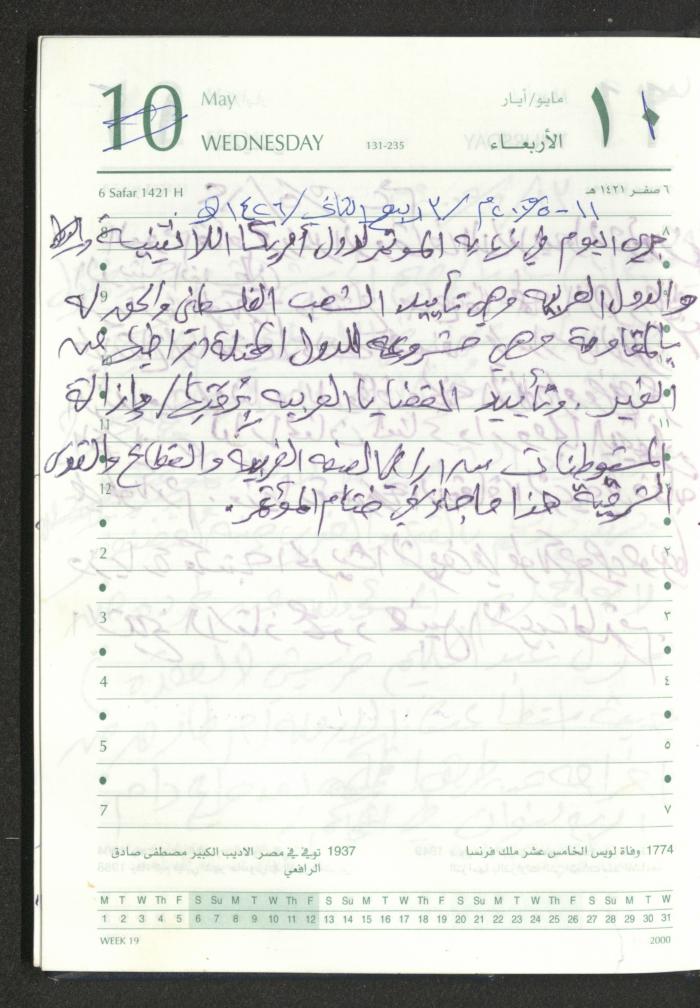 10 May مايو/أيار ١٠
WEDNESDAY 131-235 الأربعـــاء
6 Safar 1421 H ٦ صفـر ١٤٢١ هـ
١١-٥-٢٠٠٥م / ٣ ربيع الثاني / ١٤٢٦ هـ
جرى اليوم في نهاية المؤتمر لدول أمريكا اللاتينية
والدول العربية وهي تأييد الشعب الفلسطيني والحق له
بالمقاومة وهي مشروعة للدول المحتلة اراضيها من
الغير . وتأييد القضايا العربية / وإزالة
المستوطنات من اراضي الضفة الغربية والقطاع والقدس
الشرقية هذا ما جاء في ختام المؤتمر .
8 ٨
9
11 ١١
12
2 ٢
3 ٣
4 ٤
5 ٥
7 ٧
1774 وفاة لويس الخامس عشر ملك فرنسا
1937 توفي في مصر الاديب الكبير مصطفى صادق
الرافعي
M T W Th F S Su M T W Th F S Su M T W Th F S Su M T W Th F S Su M T W
1 2 3 4 5 6 7 8 9 10 11 12 13 14 15 16 17 18 19 20 21 22 23 24 25 26 27 28 29 30 31
WEEK 19 2000